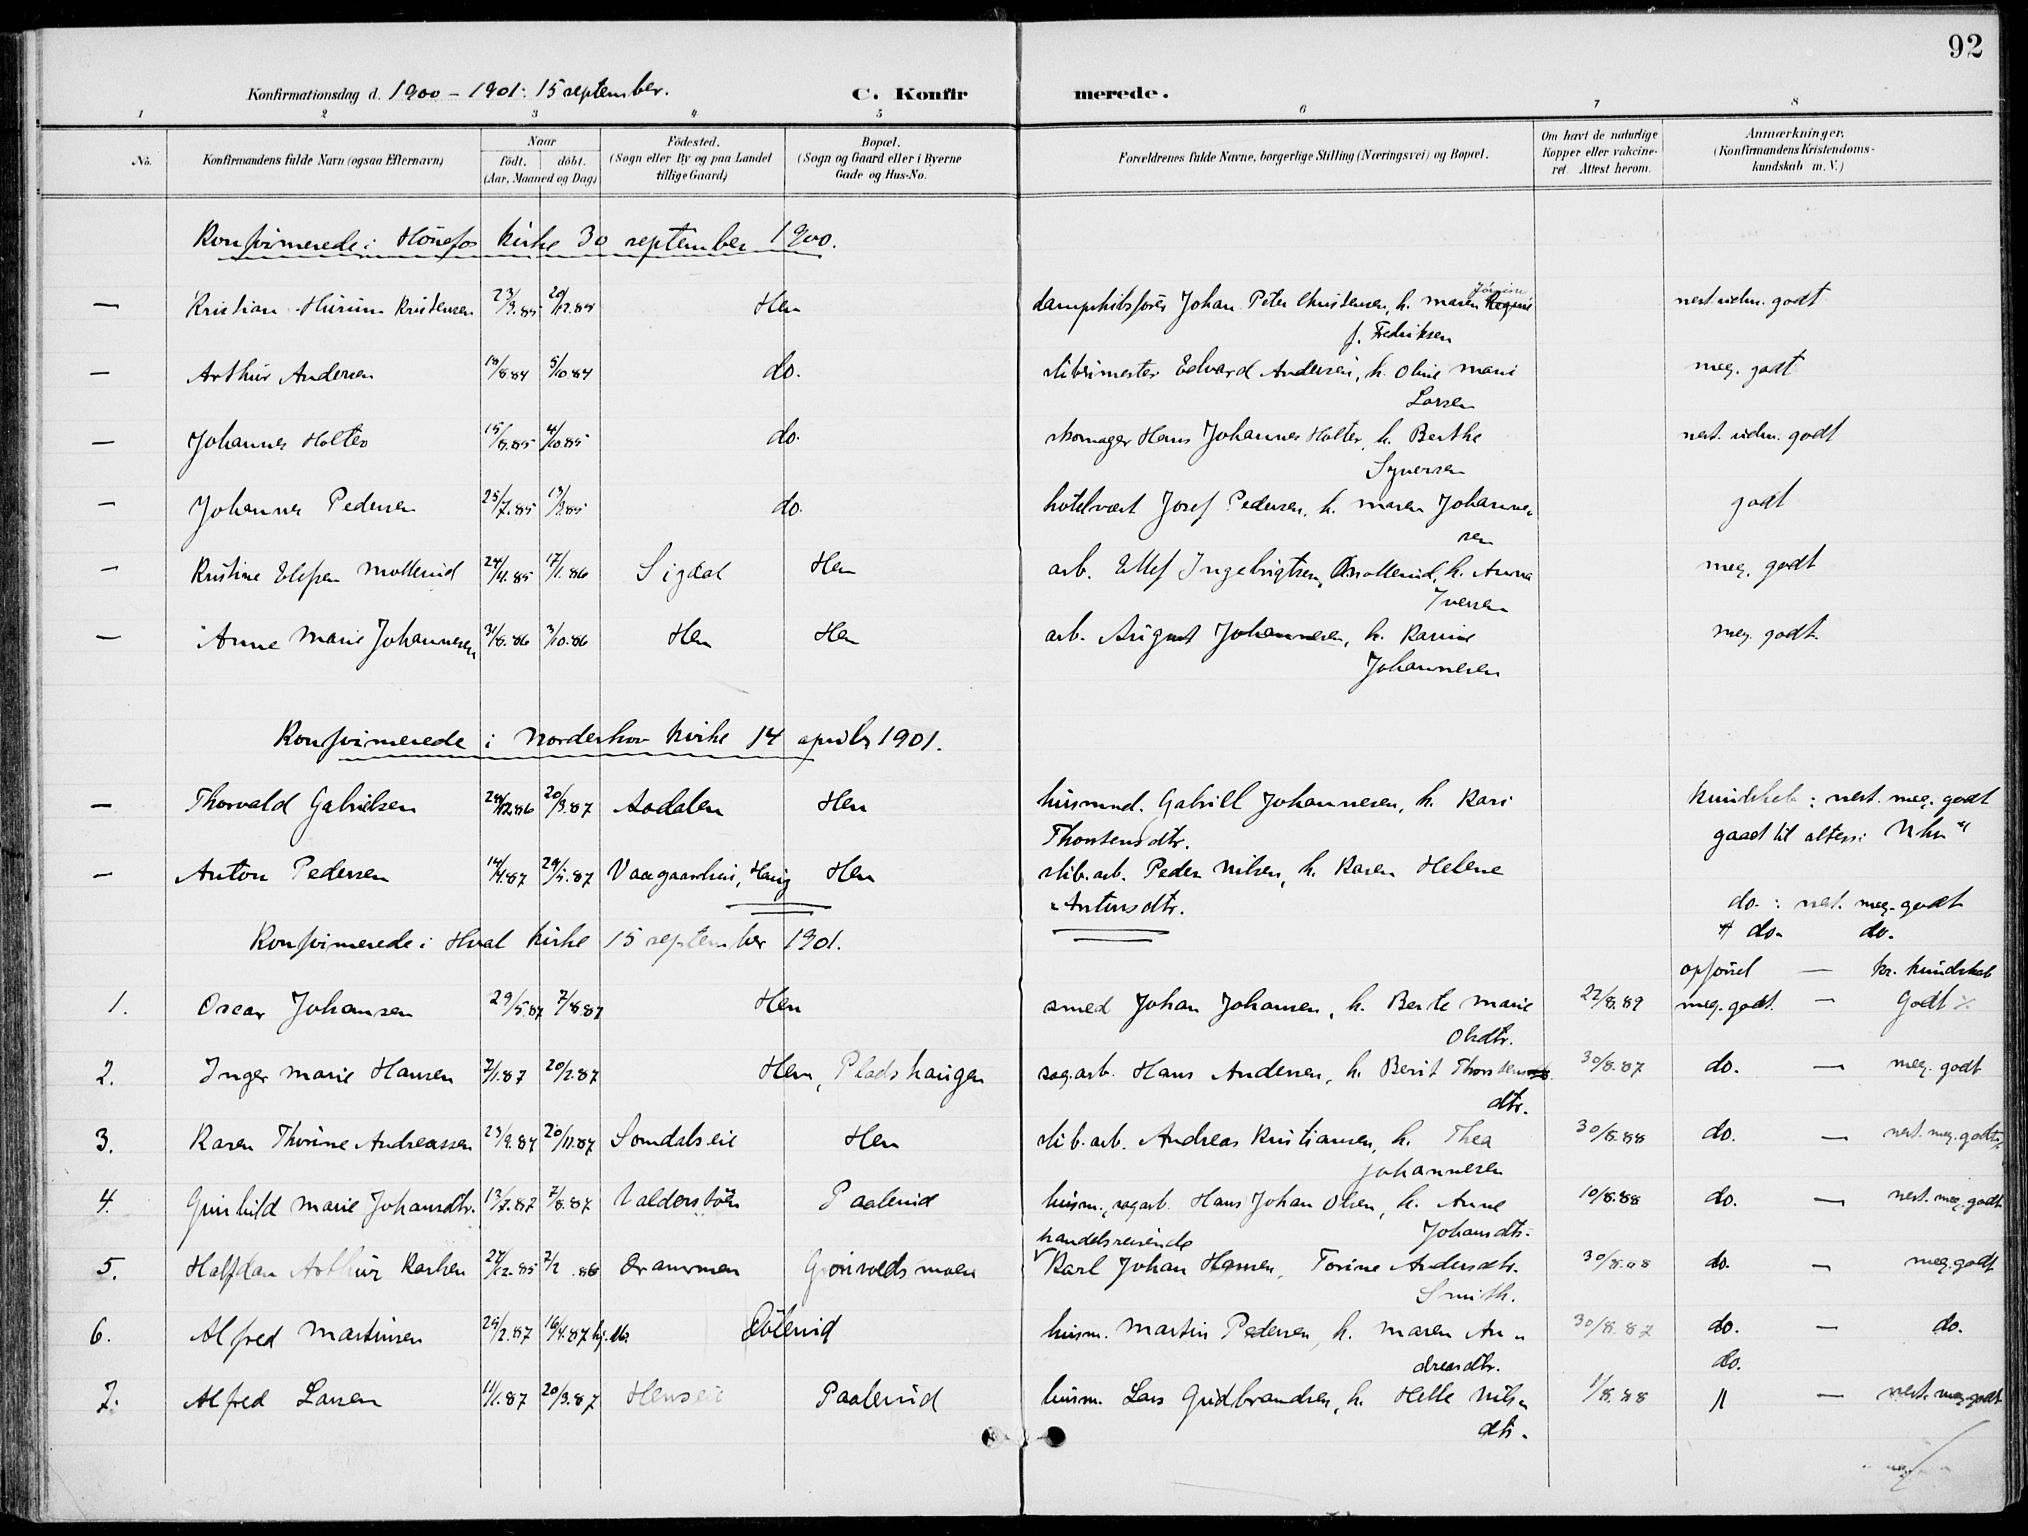 92
Konfirmationsdag d. 1900 – 1901: 15 september. C. Konfirmerede.
1 2 3 4 5 6 7 8
No. Konfirmandens fulde Navn (ogsaa Efternavn) Naar født. døbt. (Aar, Maaned og Dag) Fødested. (Sogn eller By og paa Landet tillige Gaard) Bopæl. (Sogn og Gaard eller i Byerne Gade og Hus-No. Forældrenes fulde Navne, borgerlige Stilling (Næringsvei) og Bopæl. Om havt de naturlige Kopper eller vakcineret. Attest herom. Anmærkninger. (Konfirmandens Kristendomskundskab m. V.)
Konfirmerede i Hönefos kirke 30 september 1900.
— Kristian Hurum Kristensen 23/9.85 20/12.85 Hen Johan Peter Christensen, h. Maren Jörgine nest. udm. godt
f. Fredriksen
— Arthur Andersen 13/8.84 5/10.84 do. slibrimester Edvard Andersen, h. Oline Marie meg. godt
Larsen
— Johannes Holter 15/8.85 4/10.85 do. skomager Hans Johannes Holter, h. Berthe nest. udm. godt
Syversen
— Johannes Pedersen 25/7.85 13/9.85 do. hotelvært Josef Pedersen, h. Maren Johannes godt
sen
— Kristine Elefsen Mollerud 24/11.85 17/1.86 Sigdal Hen arb. Ellef Ingebrigtsen Mollerud, h. Anna meg. godt
Iversen
— Anne Marie Johannesen 31/8.86 3/10.86 Hen Hen arb. August Johannesen, h. Karine meg. godt.
Johannesen
Konfirmerede i Norderhov kirke 14 april 1901.
— Thorvald Gabrielsen 24/12.86 20/3.87 Aadalen Hen husmnd. Gabriel Johannesen, h. Kari Kundskab: nest. meg. godt
Thorstensdtr. gaaet til alters:
— Anton Pedersen 14/4.87 29/5.87 Hen slib.arb. Peder Nilsen, h. Karen Helene
Antonsdtr. do.: nest. meg. godt
Konfirmerede i Hval kirke 15 september 1901. do. do.
opförsel — kr. kundskab
1. Oscar Johansen 29/5.87 7/8.87 Hen smed Johan Johansen, h. Berte Marie 22/8.89 meg. godt. — Godt
Olsdtr.
2. Inger Marie Hansen 2/1.87 20/2.87 Hen, Pladshaugen sagarb. Hans Andersen, h. Berit Thorstens 30/8.87 do. — meg. godt
dtr.
3. Karen Thorine Andreassen 23/9.87 20/11.87 Somdalseie Hen slib.arb. Andreas Kristiansen, h. Thea 30/8.88 do. — nest. meg. godt
Johannesen
4. Gunhild Marie Johansdtr. 13/7.87 7/8.87 Paalerud husm., sagarb. Hans Johan Olsen, h. Anne 10/8.88 do. — nest. meg. godt.
handelsreisende Johansdtr.
5. Halfdan Arthur Karlsen 27/12.85 7/2.86 Drammen Grönvoldsmoen Karl Johan Hansen, Torine Andersdtr. 30/8.88 do. — meg. godt
Smith.
6. Alfred Martinsen 29/2.87 16/4.87 Dölerud husm. Martin Pedersen, h. Maren An- 30/8.87 do. — do.
dreasdtr. do.
7. Alfred Larsen 11/1.87 20/3.87 Henseie Paalerud husm. Lars Gudbrandsen, h. Helle Nils- 1/8.88 — nest. meg. godt
dtr.